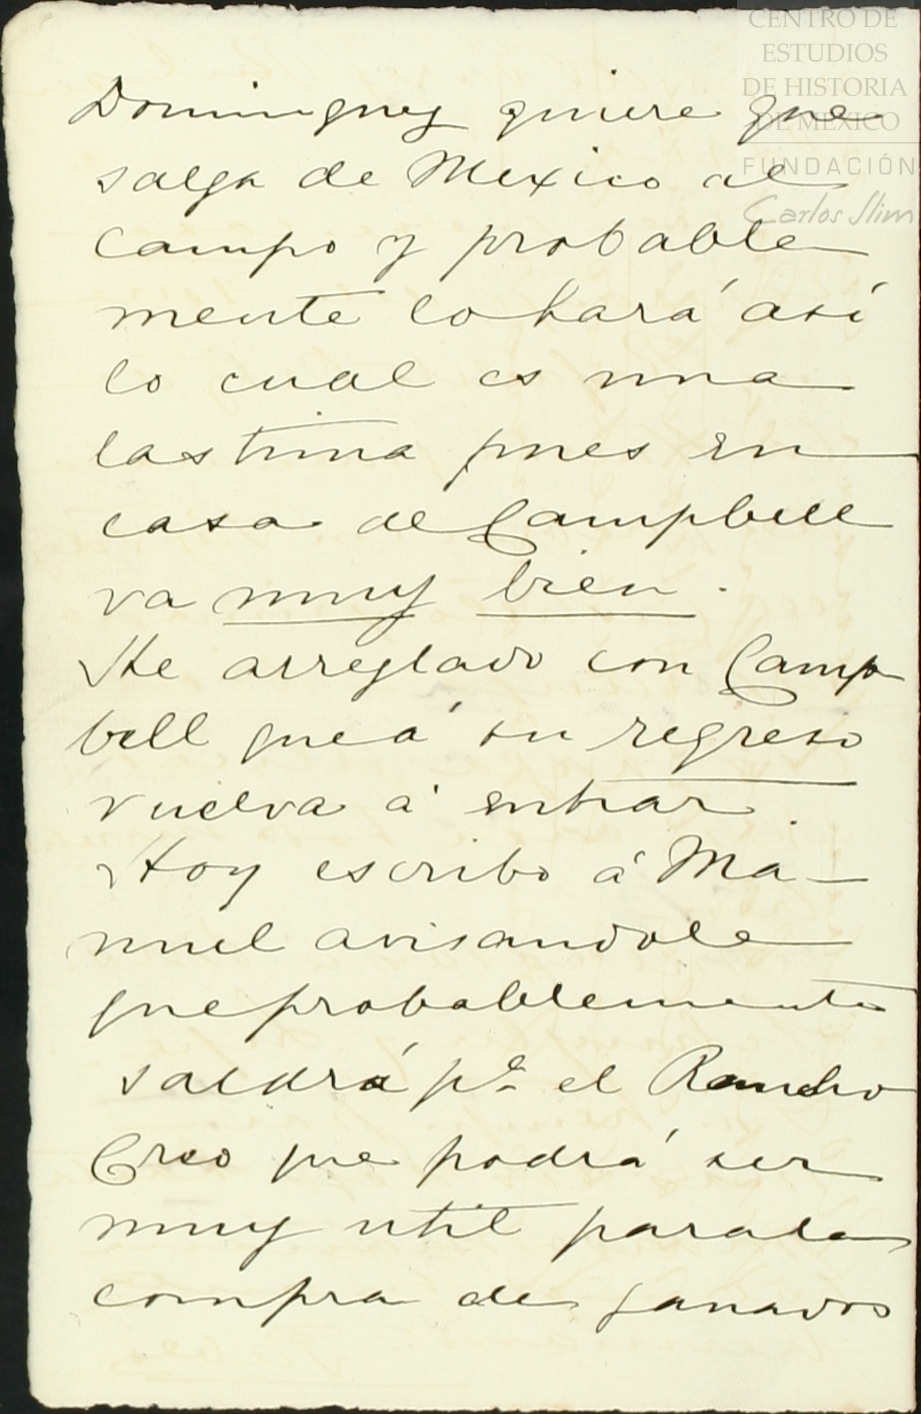 CENTRO DE
ESTUDIOS
DE HISTORIA
DE MÉXICO
FUNDACIÓN
Carlos Slim
Dominguez quiere que
salga de Mexico al
campo y probable
mente lo hará así
lo cual es una
lastima pues en
casa de Campbell
va muy bien.
He arreglado con Camp
bell que á su regreso
vuelva á entrar.
Hoy escribo á Ma-
nuel avisandole
que probablemente
saldrá pa el Rancho
Creo que podrá ser
muy util para la
compra de ganados